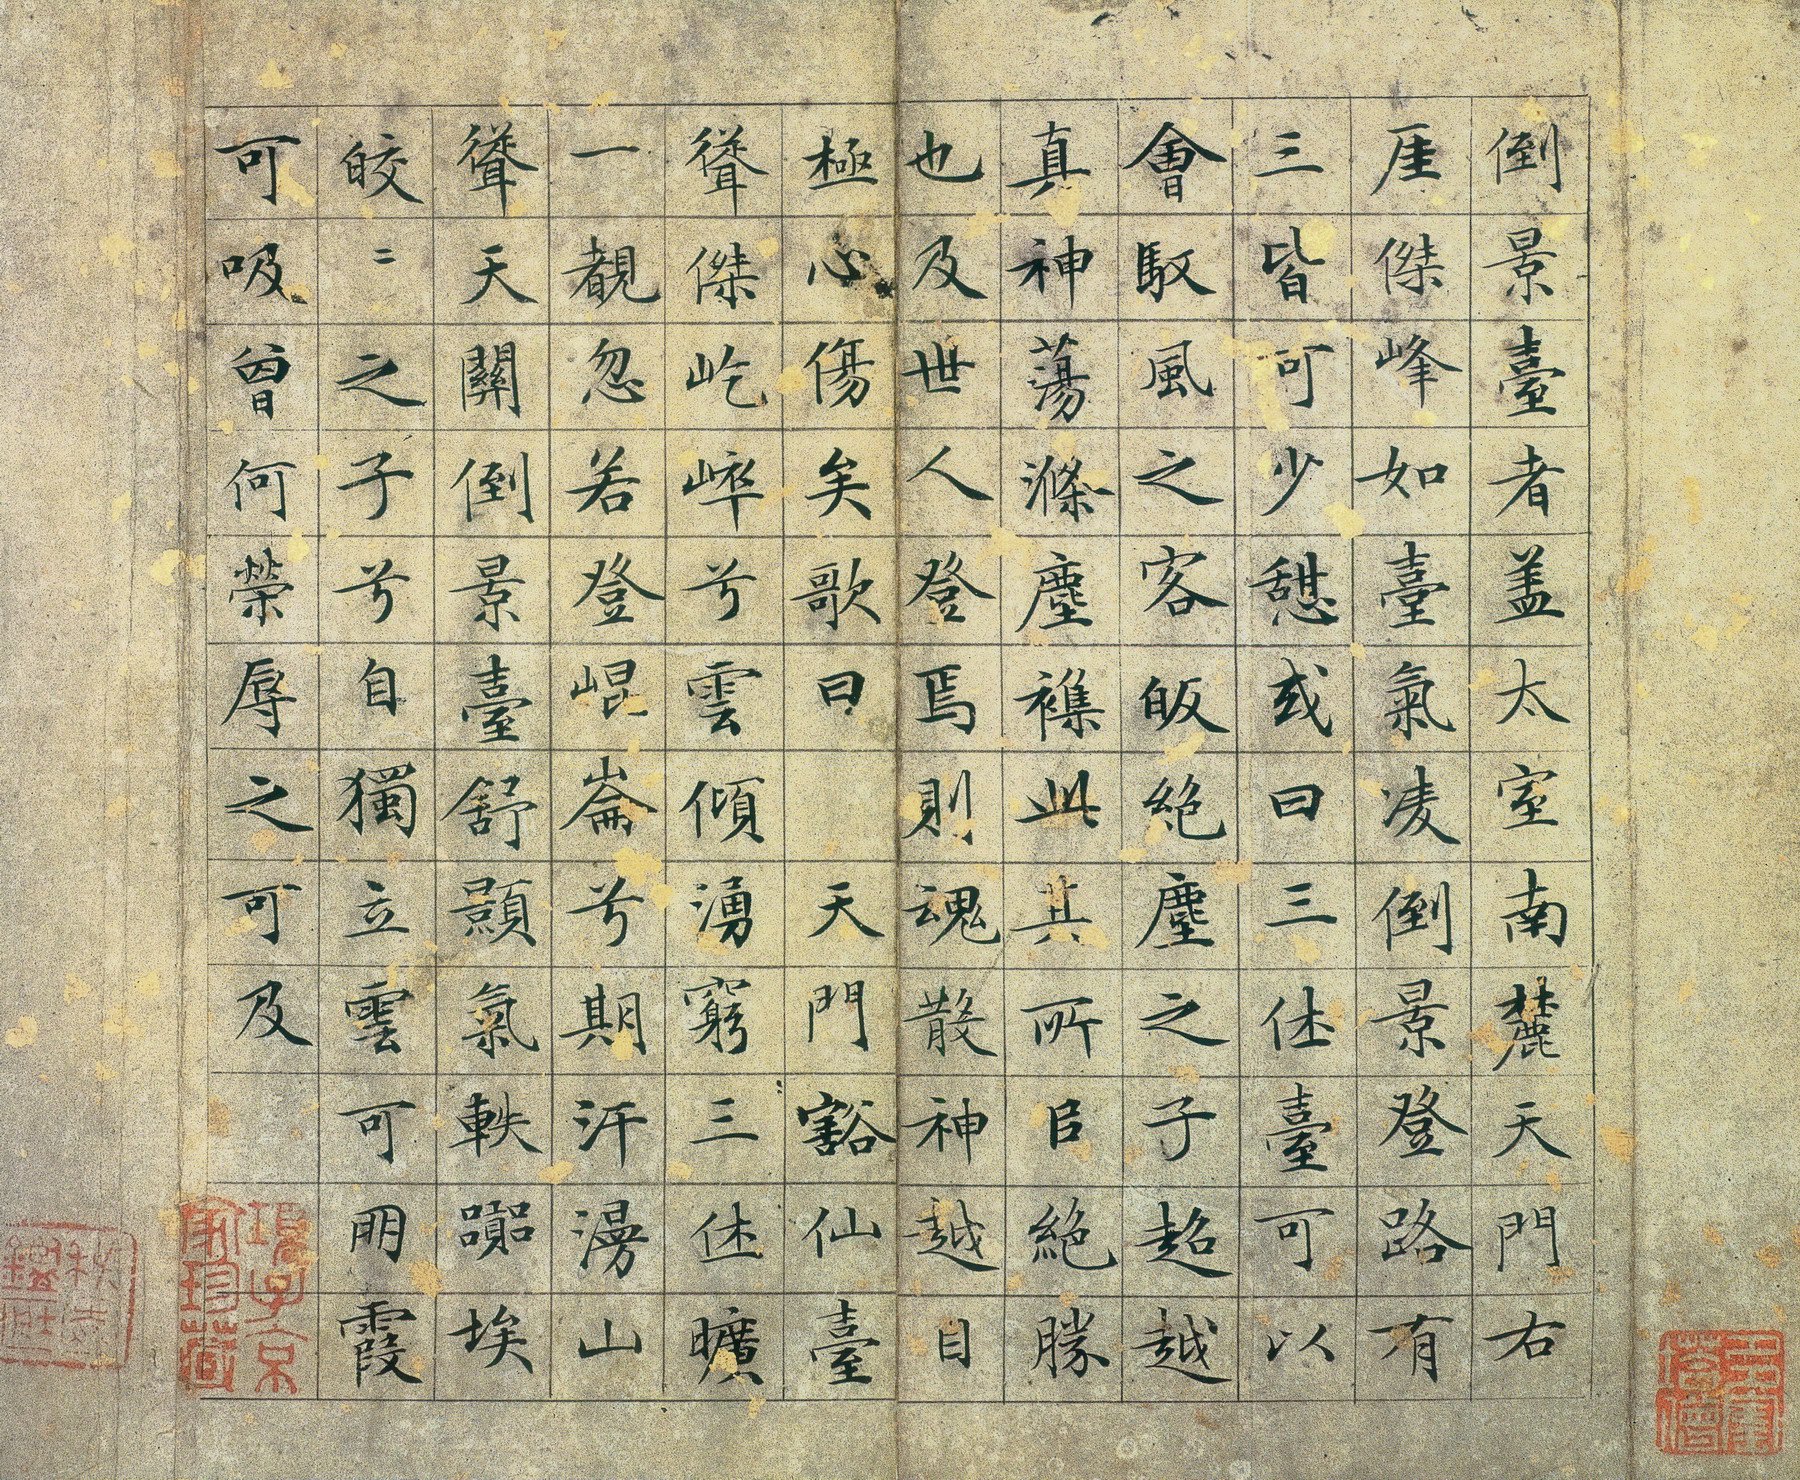 倒景臺者盖太室南麓天門右
厓傑峰如臺氣凌倒景登路有
三皆可少憩或曰三休臺可以
會馭風之客皈絶塵之子超越
真神蕩滌塵襍此其所㠯絶勝
也及世人登焉則魂散神越目
極心傷矣歌曰 天門豁仙臺
聳傑屹崒兮雲傾湧窮三休曠
一覩忽若登崐崙兮期汗漫山
聳天關倒景臺舒顥氣軼嚻埃
皎〻之子兮自獨立雲可朋霞
可吸曾何榮辱之可及
項子京家珍藏